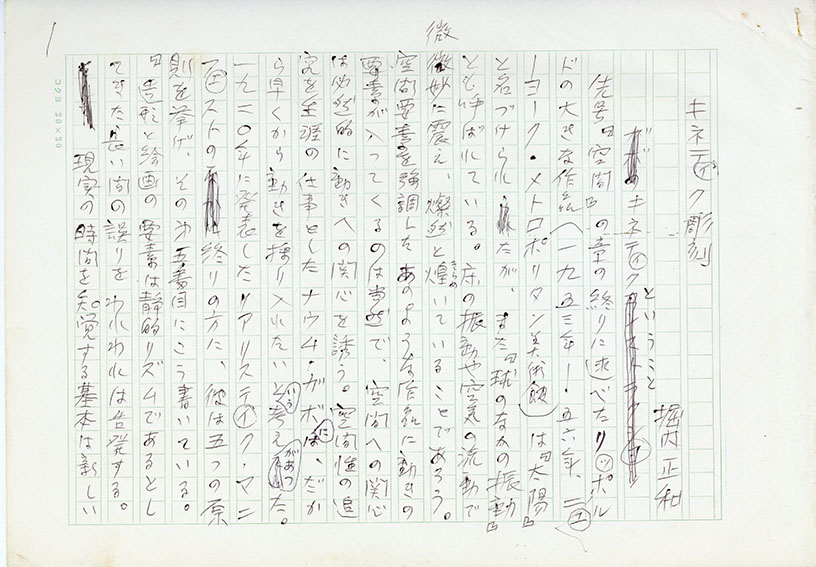 キネティク彫刻
堀内正和
キネティクということ
先号『空間』の章の終りに述べたリッポル
ドの大きな作品(一九五三年―五六年、ニュ
ーヨーク・メトロポリタン美術館)は『太陽』
と名づけられたが、また『球のなかの振動』
とも呼ばれている。床の振動や空気の流動で
微
微妙に震え、燦然と煌いていることであろう。
きらめ
空間要素を強調したあのような作品に動きの
要素が入ってくるのは当然で、空間への関心
は必然的に動きへの関心を誘う。空間性の追
究を生涯の仕事としたナウム・ガボには、だか
ら早くから動きを採り入れたいという考えがあった。
一九二〇年に発表したリアリスティク・マニ
フェストの終りの方に、彼は五つの原
則を挙げ、その第五番目にこう書いている。
『造形と絵画の要素は静的リズムであるとし
てきた長い間の誤りをわれわれは告発する。
現実の時間を知覚する基本は新しい
コクヨ 20×20